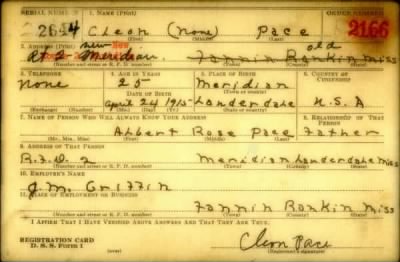 SERIAL NUMBER 1. NAME (Print) ORDER NUMBER
2644 Cleon (None) Pace 2166
2. ADDRESS (Print) new old
Rt 2 Meridian. Fannin Rankin Miss
(Number and street or R. F. D. number) (Town) (County) (State)
3. TELEPHONE 4. AGE IN YEARS 5. PLACE OF BIRTH 6. COUNTRY OF CITIZENSHIP
None 25 Meridian
DATE OF BIRTH (Town or county)
April 24 1915 Lauderdale U.S.A.
(Exchange) (Number) (Mo.) (Day) (Yr.) (State or country)
7. NAME OF PERSON WHO WILL ALWAYS KNOW YOUR ADDRESS 8. RELATIONSHIP OF THAT PERSON
Albert Rose Pace Father
(Mr., Mrs., Miss) (First) (Middle) (Last)
9. ADDRESS OF THAT PERSON
R.F.D. 2 Meridian Lauderdale Miss
(Number and street or R. F. D. number) (Town) (County) (State)
10. EMPLOYER'S NAME
J.M. Griffin
11. PLACE OF EMPLOYMENT OR BUSINESS
Fannin Rankin Miss
(Number and street or R. F. D. number) (Town) (County) (State)
I AFFIRM THAT I HAVE VERIFIED ABOVE ANSWERS AND THAT THEY ARE TRUE.
REGISTRATION CARD
D. S. S. Form 1 Cleon Pace